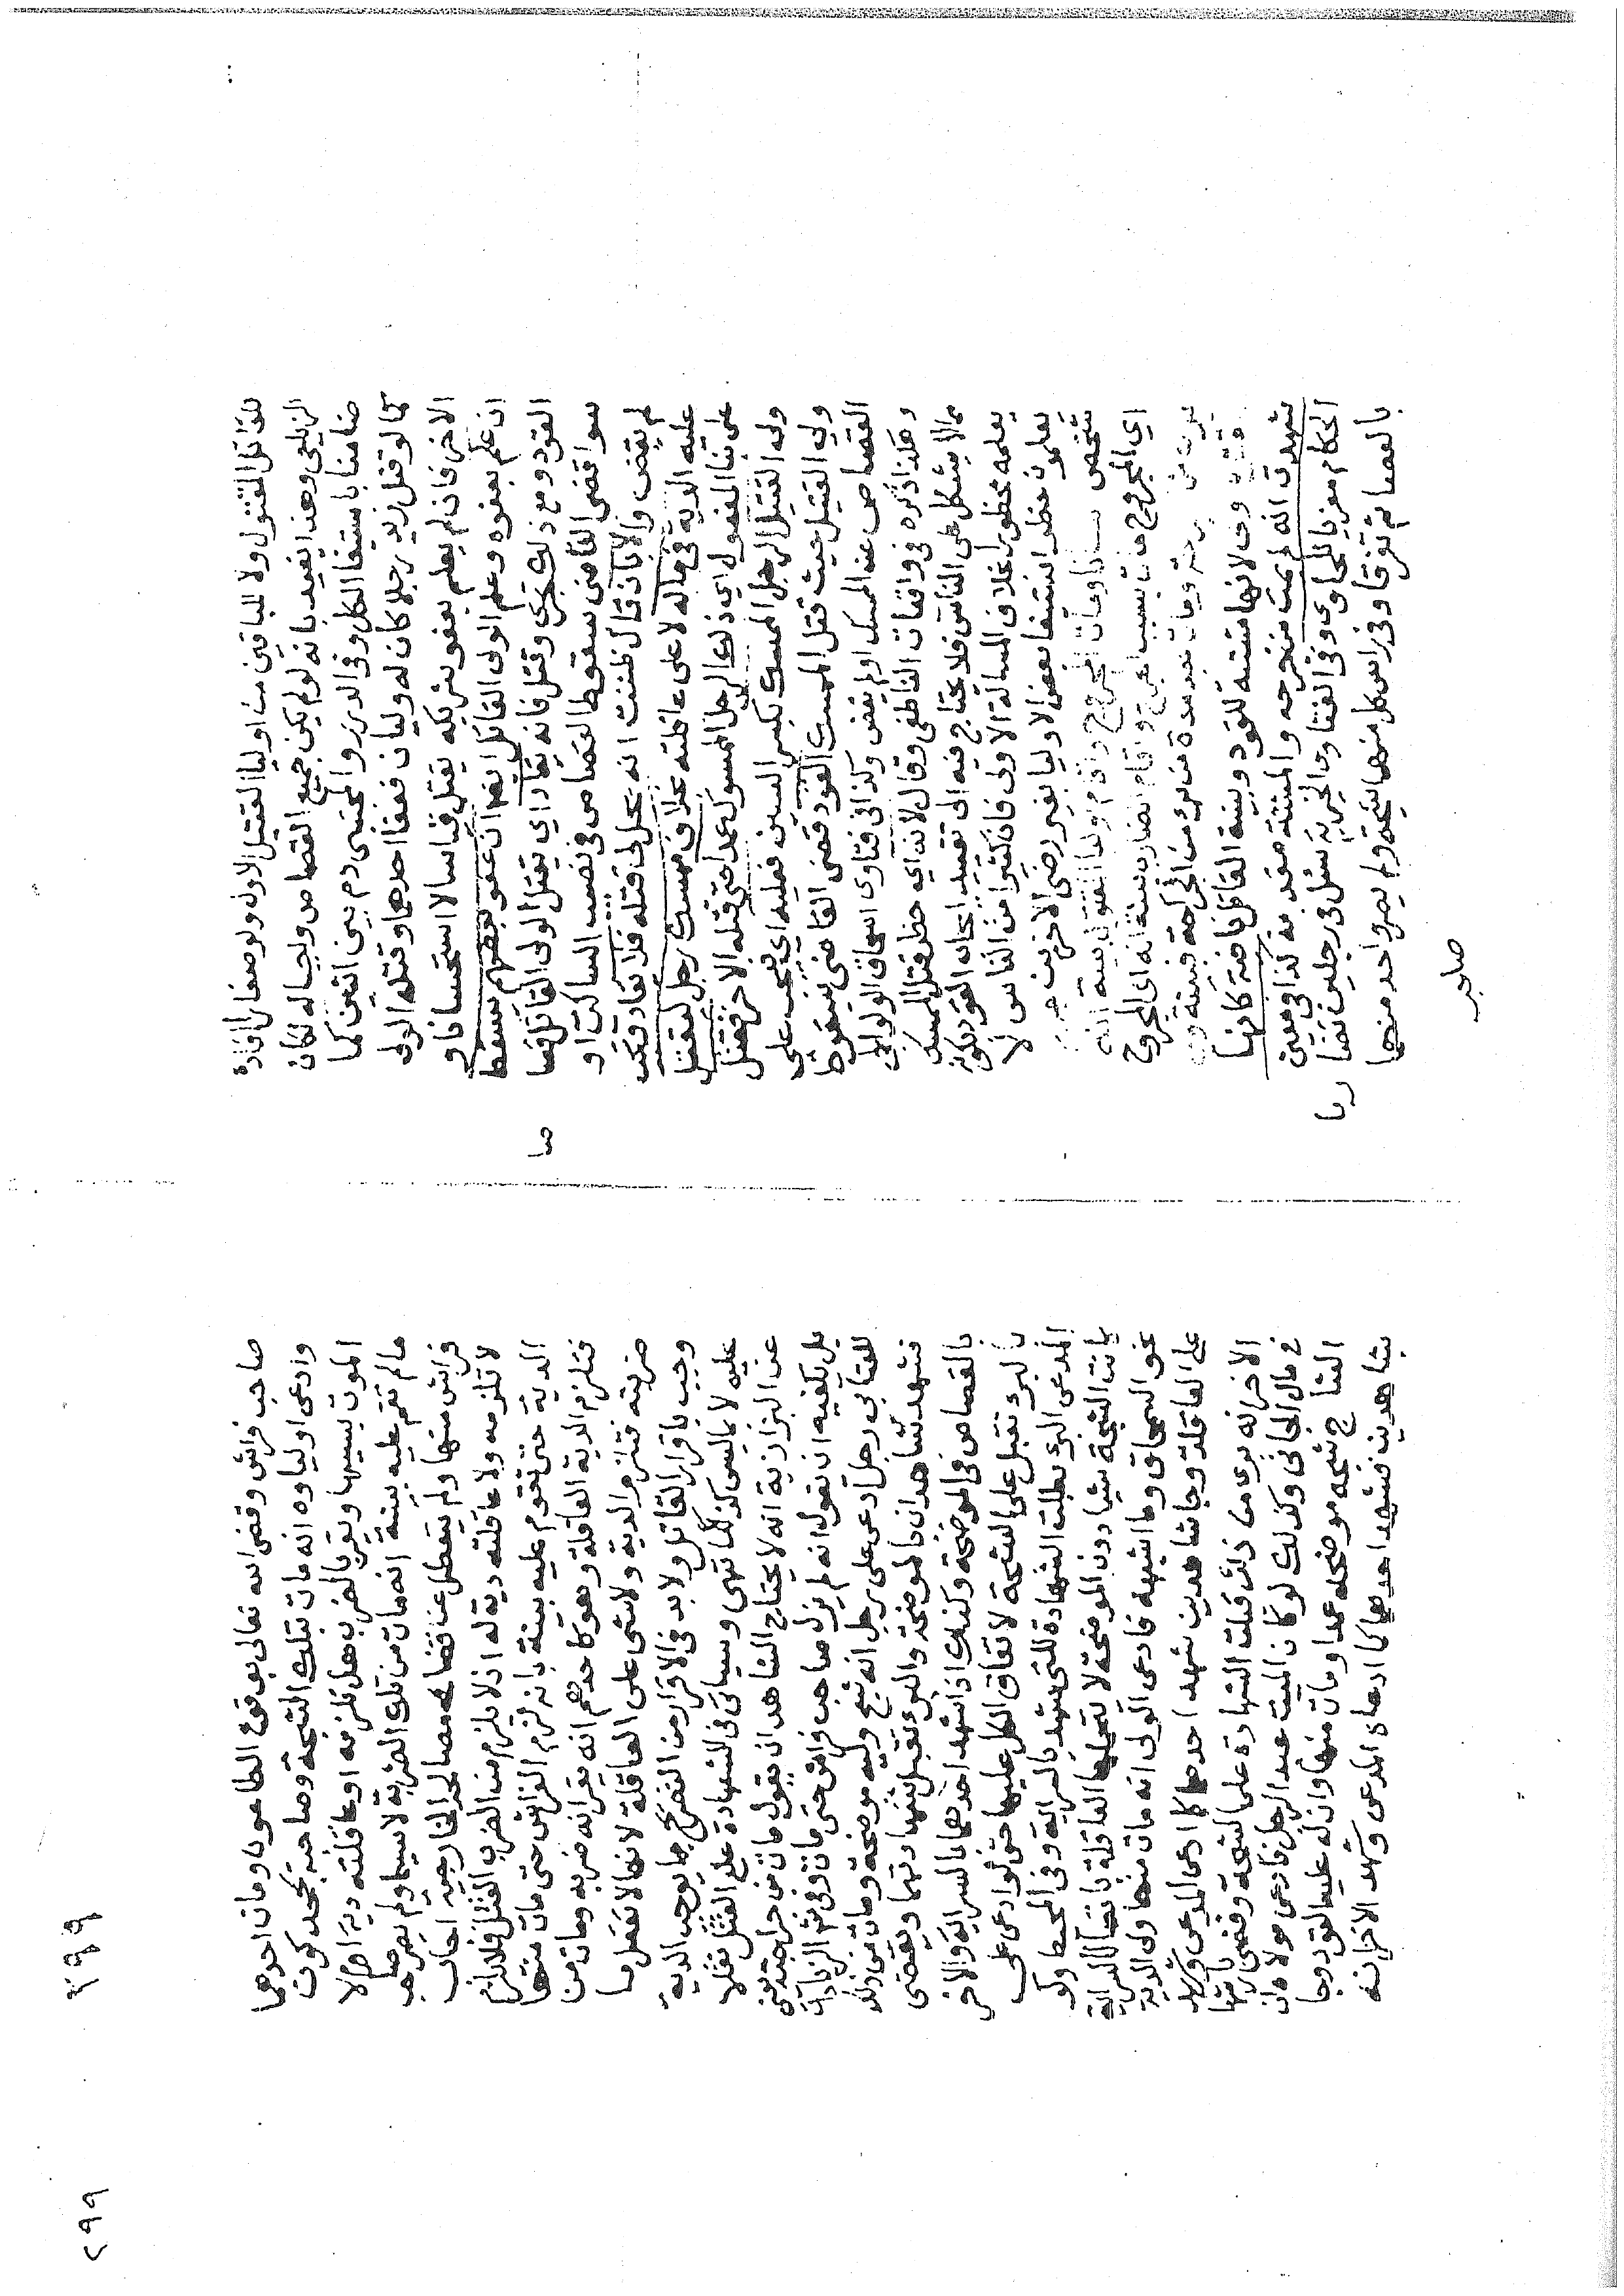 للقاتل المقتول ولا للباقين من اوليا القتيل الاول افاده
الزيلعي وهذا يفيد بانه لو لم يكن جميع القصاص واجبا له لكان
ضامنا باستيفا الكل وفي الدرر والمجتبى دم بين اثنين كما
كما لو قتل زيد رجلا كان له وليان فعفا احدهما وقتله الولي
الاخر فان لم يعلم بعفو شريكه يقتل قياسا لا استحسانا و
ان علم بعفوه وعلم الولي القاتل ايضا ان عفو بعضهم يسقط
القود ومع ذلك وقتل فانه يقاد اي يقتل الولي القاتل قصا
صا
سوا قضى القاضي بسقوط القصاص في نصيب الساكت او
لم يقض والا بان قال ظننت انه يحل لي قتله فلا يقاد وتجب
عليه الدية في ماله لا على عاقلته بخلاف ممسك رجل ليقتل
على بنا المفعول اي ذلك الرجل عمدا حتى قتله الاخر فقتل
ولي القتيل الرجل الممسك بكسر السين فعليه اي يجب على
ولي القتيل حيث قتل الممسك القود قضى القاضي بسقوط
القصاص عن الممسك او لم يقض وكذا في فتاوى اسحاق الولوالجي
وهكذا ذكره في واقعات الناطفي وقال لانه اي حظر قتل الممسك
مما لا يشكل على الناس فلا يحتاج فيه الى تقييد ايجاب القود بكونه
يعلمه محظورا بخلاف المسالة الاولى فان كثيرا من الناس لا
يعلمون حظر استيفا بعض الاوليا بغير رضى الاخرين جرح
شخص انسانا ومات المجروح واقام اوليا المقتول بينة انه
اي المجروح مات بسبب الجرح واقام الضارب بينة انه اي المجروح
ومات بعد مدة من الجراحة فبينة
لانها مثبتة للقود وبينة القاتل نافية كانها
شهدت انه لم يمت من جرحه والمثبتة مقدمة كذا في معين
الحكام معزيا للحاوي وفي الفتاوى الخيرية سئل في رجلين تضا
ربا
بالعصا ثم تفرقا وفي راس كل منهما شجة ولم يصر واحد منهما
صاحب
٢٩٩
صاحب فراش وقضى الله تعالى بوقوع الطاعون ومات احدهما
وادعى اولياوه انه مات بتلك الشجة وصاحبه يجحد كون
الموت بسببها ويقر بالضرب هل تلزمه او عاقلته دية ام لا
ما لم تقم عليه بينة انه مات من تلك الضربة لا سيما ولم يصر صاحب
فراش منها ولم يتعطل عن قضا مصالحه الخارجية اجاب
لا تلزمه ولا عاقلته دية له اذ لا يلزم من الضرب القتل فلا تلزم
الدية حتى تقوم عليه بينة بانه لزم الفراش حتى مات منها
فتلزم الدية العاقلة وهو كاحدهم انه يقر انه ضربه ومات من
ضربته فتلزم الدية ولا شي على العاقلة لانها لا تعقل ما
وجب باقرار القاتل ولا بد في الاقرار من التصريح بما يوجب الدية
عليه لا بما ليس كذلك انتهى وسياتي في الشهادة على القتل نقلا
عن البزازية انه لا يحتاج الشاهد ان يقول مات من جراحته يعني
بل يكفيه ان يقول انه لم يزل صاحب فراش حتى مات وفي
للعتابي رجل ادعى على رجل انه شج وليه موضحة ومات من ذلك
فشهد شاهدان بالموضحة والبرء تقبل شهادتهما ويقضى
بالقصاص في الموضحة وكذلك اذا شهد احدهما بالسراية والاخر
بالبرء تقبل على الشجة لاتفاق الكل عليها حتى لو ادعى
المدعي البرء بطلت الشهادة للتي شهد بالسراية وفي المحيط ولو
كانت الشجة شيا دون الموضحة لا تحملها العاقلة
نحو السمحاق وما اشبهه فادعى الولي انه مات منها ولي الدية
على العاقلة وجا شاهدين شهد احدهما كما ادعى المدعي وشهد
الاخر انه برئ من ذلك قبلت الشهادة على الشجة وقضي بارشها
في مال الجاني وكذلك لو كان الميت عبد الرجل فادعى مولاه ان
الشاج شجه موضحة عمدا ومات منها وان له عليه القود وجا
بشاهدين فشهد احدهما كما ادعاه المدعي وشهد الاخر انه
٢٩٩